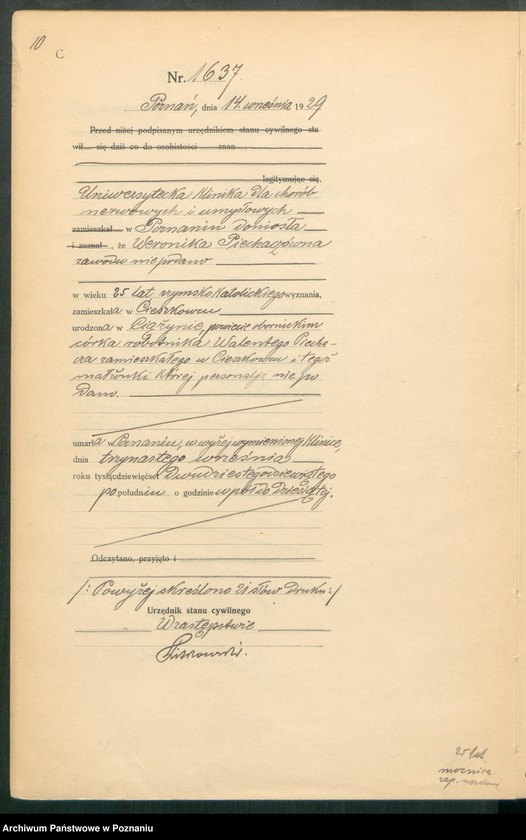 10
C
Nr. 1637.
Poznań, dnia 14. września 1929
Przed niżej podpisanym urzędnikiem stanu cywilnego sta
wił się dziś co do osobistości znan
legitymując się,
Uniwersytecka Klinika dla chorób
nerwowych i umysłowych
zamieszkał w Poznaniu doniosła
i zeznał, że Weronika Piechazówna
zawodu nie podano
w wieku 25 lat, rzymsko katolickiego wyznania,
zamieszkała w Cieszkowie
urodzona w powiecie obornickim
córka robotnika Walentego Piecha-
za zamieszkałego w Cieszkowie i tegoż
małżonki której personalja nie po
dano.
umarła w Poznaniu, w wyżej wymienionej Klinice,
dnia trzynastego września
roku tysiącdziewięćset dwudziestegodziewiątego
po południu o godzinie wpół do dziesiątej.
Odczytano, przyjęto i
/: Powyżej skreślono 21 słów druku :/
Urzędnik stanu cywilnego
W zastępstwie
25 lat
Archiwum Państwowe w Poznaniu